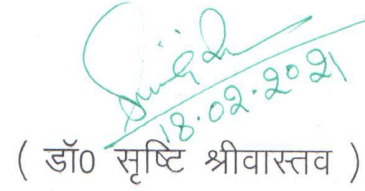 18.02.2021
( डॉ0 सृष्टि श्रीवास्तव )